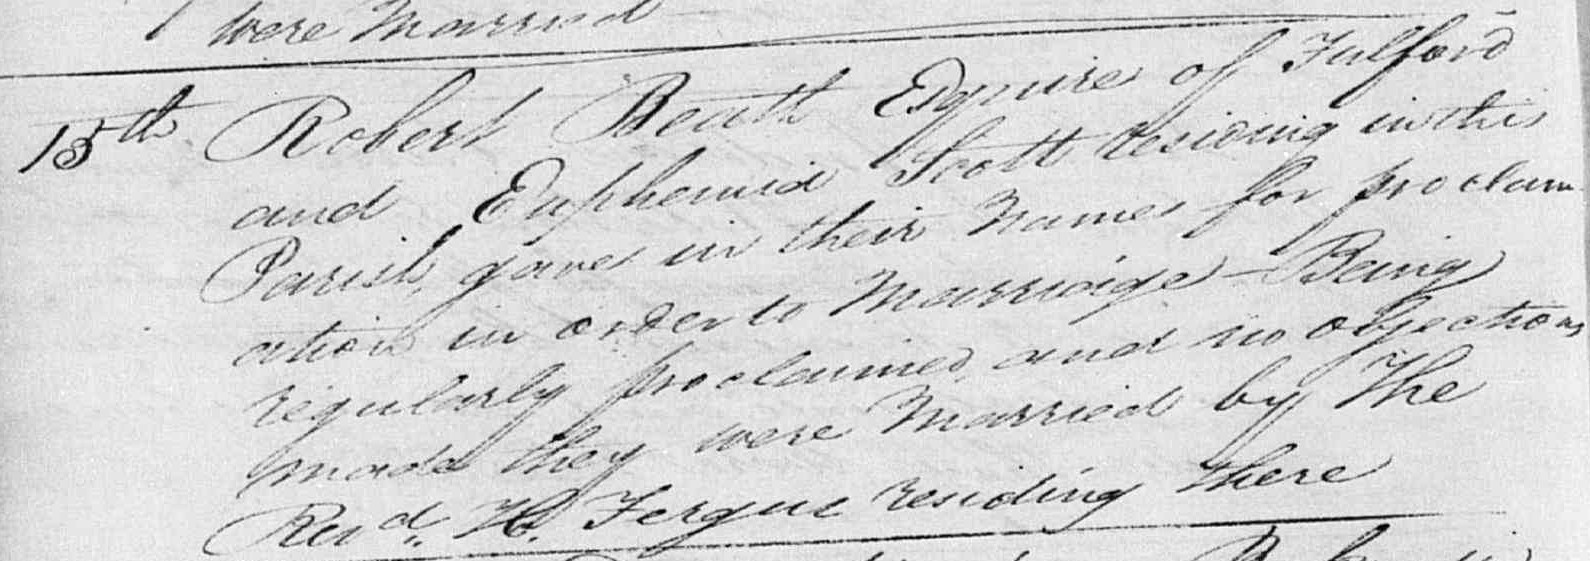 were Married
15th Robert Beath Esquire of Fulford
and Euphemia Scott residing in this
Parish, gave in their Names for proclam
ation in order to Marriage – Being
regularly proclaimed and no objections
made they were Married by The
Revd. H. Fergus residing there